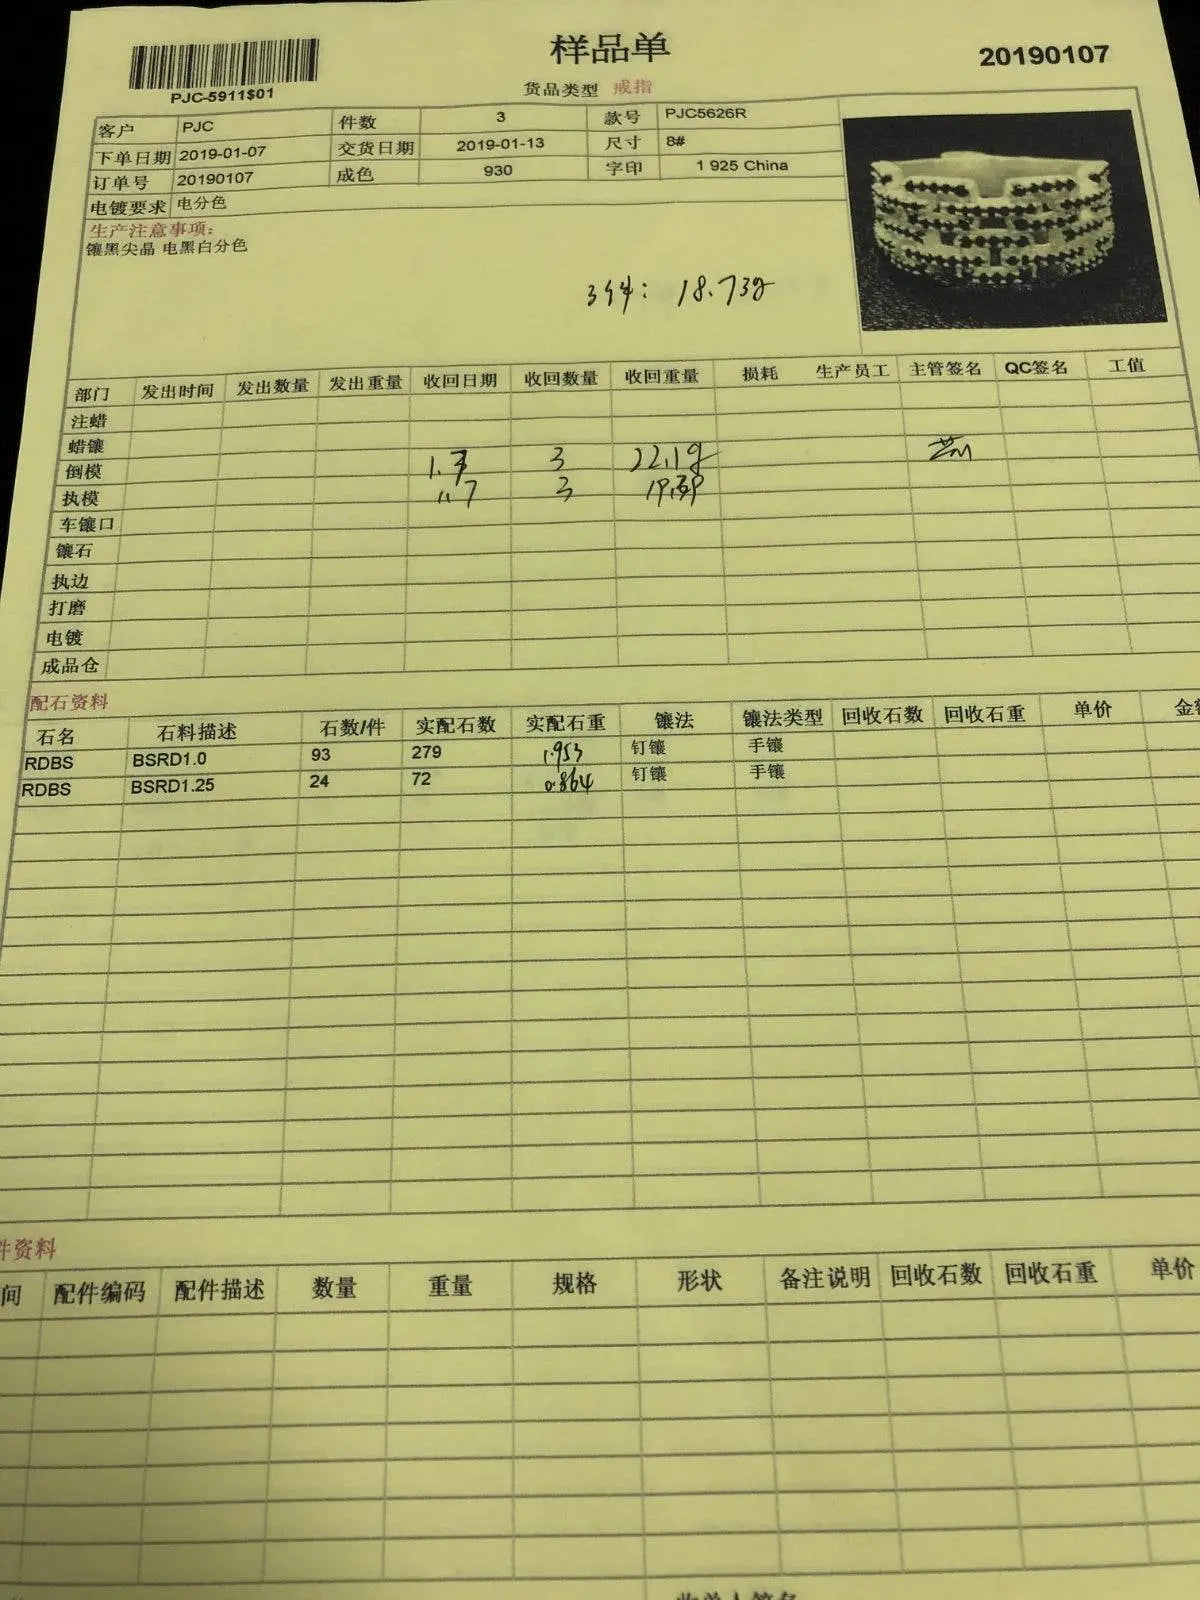 样品单
20190107
PJC-5911$01
货品类型 戒指
客户 PJC 件数 3 款号 PJC5626R
下单日期 2019-01-07 交货日期 2019-01-13 尺寸 8#
订单号 20190107 成色 930 字印 1 925 China
电镀要求 电分色
生产注意事项:
镶黑尖晶 电黑白分色
3件: 18.73g
部门 发出时间 发出数量 发出重量 收回日期 收回数量 收回重量 损耗 生产员工 主管签名 QC签名 工值
注蜡
蜡镶
倒模 3 22.1g
执模 1.7 3
车镶口
镶石
执边
打磨
电镀
成品仓
配石资料
石名 石料描述 石数/件 实配石数 实配石重 镶法 镶法类型 回收石数 回收石重 单价
RDBS BSRD1.0 93 279 1.953 钉镶 手镶
RDBS BSRD1.25 24 72 0.864 钉镶 手镶
件资料
间 配件编码 配件描述 数量 重量 规格 形状 备注说明 回收石数 回收石重 单价